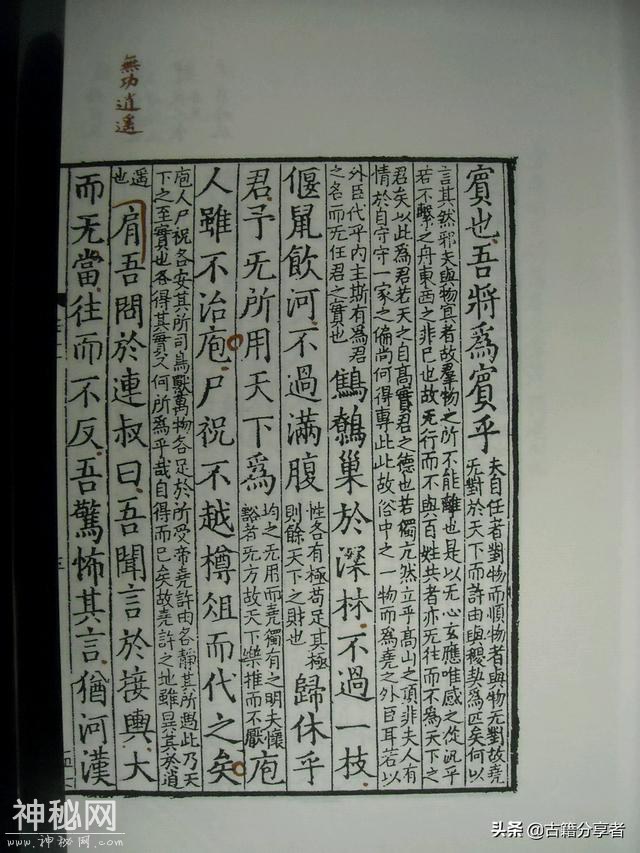 無功逍遥
賓也吾將爲賓乎
夫自任者對物而順物者與物无對故堯
无對於天下而許由與稷契爲匹矣何以
言其然邪夫與物冥者故羣物之所不能離也是以无心玄應唯感之從汎乎
若不繫之舟東西之非已也故无行而不與百姓共者亦无往而不爲天下之
君矣以此爲君若天之自高實君之德也若獨亢然立乎高山之頂非夫人有
情於自守守一家之偏尚何得專此此故俗中之一物而爲堯之外臣耳若以
外臣代乎內主斯有爲君
之名而无任君之實也
鷦鷯巢於深林不過一枝
偃鼠飲河不過滿腹
性各有極苟足其極
則餘天下之財也
歸休乎
君予无所用天下爲
均之无用而堯獨有之明夫懷
豁者无方故天下樂推而不厭
庖
人雖不治庖尸祝不越樽俎而代之矣
庖人尸祝各安其所司鳥獸萬物各足於所受帝堯許由各靜其所遇此乃天
下之至實也各得其實又何所爲乎哉自得而已矣故堯許之地雖異其於逍
遥
也
肩吾問於連叔曰吾聞言於接輿大
而无當往而不反吾驚怖其言猶河漢
神秘网
www.神秘网.com
头条 @古籍分享者